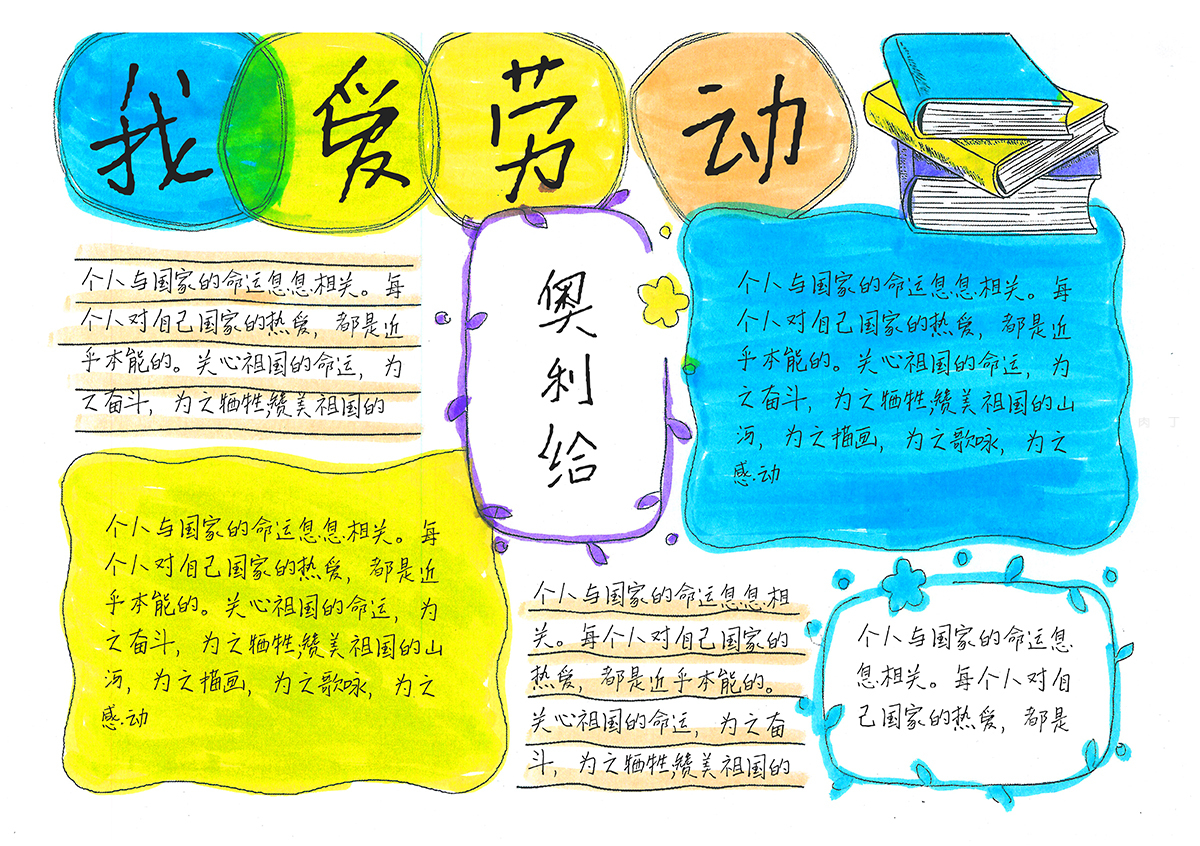 我爱劳动
个人与国家的命运息息相关。每
个人对自己国家的热爱，都是近
乎本能的。关心祖国的命运，为
之奋斗，为之牺牲;赞美祖国的
奥
利
给
个人与国家的命运息息相关。每
个人对自己国家的热爱，都是近
乎本能的。关心祖国的命运，为
之奋斗，为之牺牲;赞美祖国的山
河，为之描画，为之歌咏，为之
感动
个人与国家的命运息息相关。每
个人对自己国家的热爱，都是近
乎本能的。关心祖国的命运，为
之奋斗，为之牺牲;赞美祖国的山
河，为之描画，为之歌咏，为之
感动
个人与国家的命运息息相
关。每个人对自己国家的
热爱，都是近乎本能的。
关心祖国的命运，为之奋
斗，为之牺牲;赞美祖国的
个人与国家的命运息
息相关。每个人对自
己国家的热爱，都是
肉丁